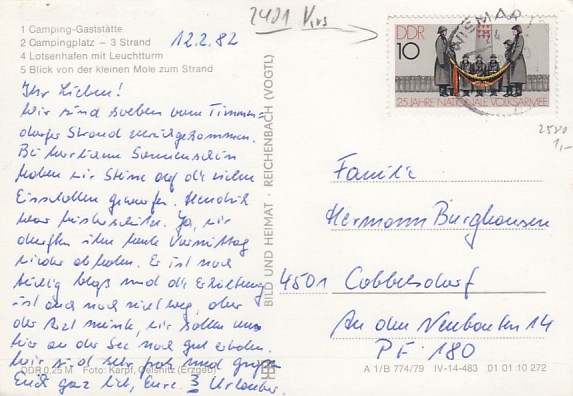 2421 Vwst
1 Camping-Gaststätte
2 Campingplatz – 3 Strand
4 Lotsenhafen mit Leuchtturm
5 Blick von der kleinen Mole zum Strand
12.2.82
Ihr Lieben!
Wir sind soeben vom Timmen-
dorfer Strand zurückgekommen.
Bei Sonnenschein
haben wir Steine auf die vielen
Eisschollen geworfen. Hendrik
war Ja, wir
durften ihn heute Vormittag
wieder abholen. Er ist noch
blaß und die Erkältung
ist auch noch nicht weg, aber
der Arzt meinte, wir sollen uns
hier an der See noch gut erholen.
Wir sind sehr froh und grüßen
Euch ganz lieb, Eure 3 Urlauber.
DDR 0,25 M Foto: Karpf, Oelsnitz (Erzgeb)
BILD UND HEIMAT · REICHENBACH (VOGTL)
WISMAR
DDR
10
25 JAHRE NATIONALE VOLKSARMEE
2580
1,-
Familie
Hermann Burghausen
4501 Cobbelsdorf
An den Neubauten 14
PF 180
A 1/B 774/79 IV-14-483 01 01 10 272